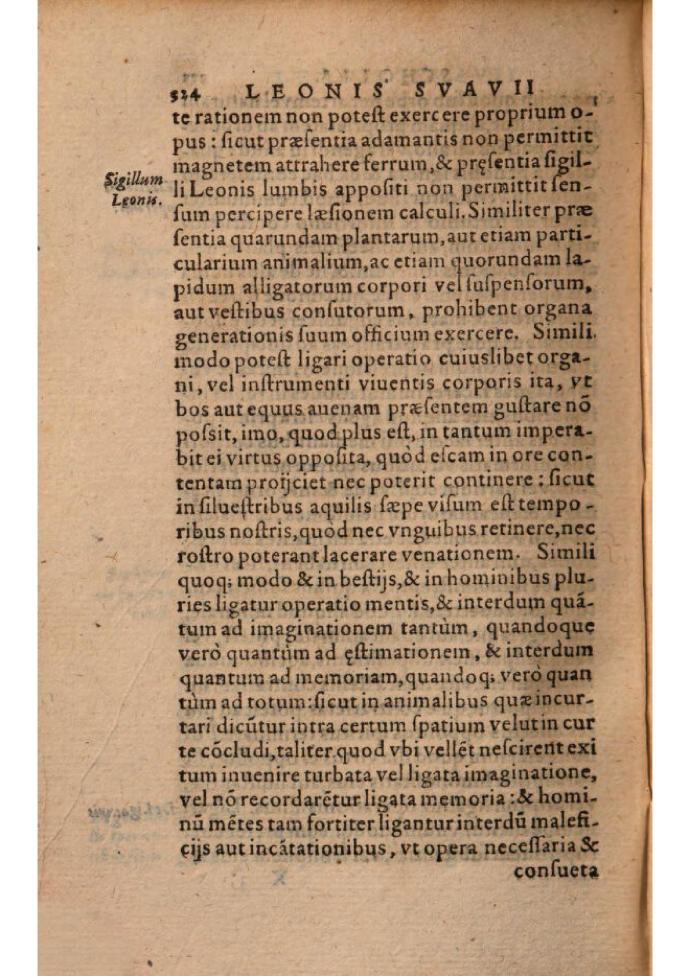 524 LEONIS SVAVII
te rationem non poteſt exercere proprium o-
pus : ſicut præſentia adamantis non permittit
magnetem attrahere ferrum, & pręſentia ſigil-
Sigillum
Leonis.
li Leonis lumbis appoſiti non permittit ſen-
ſum percipere læſionem calculi. Similiter præ
ſentia quarundam plantarum, aut etiam parti-
cularium animalium, ac etiam quorundam la-
pidum alligatorum corpori vel ſuſpenſorum,
aut veſtibus conſutorum, prohibent organa
generationis ſuum officium exercere. Simili.
modo poteſt ligari operatio cuiuslibet orga-
ni, vel inſtrumenti viuentis corporis ita, vt
bos aut equus auenam præſentem guſtare nõ
poſsit, imo, quod plus eſt, in tantum impera-
bit ei virtus oppoſita, quòd eſcam in ore con-
tentam proijciet nec poterit continere : ſicut
in ſilueſtribus aquilis ſæpe viſum eſt tempo-
ribus noſtris, quòd nec vnguibus retinere, nec
roſtro poterant lacerare venationem. Simili
quoq; modo & in beſtijs, & in hominibus plu-
ries ligatur operatio mentis, & interdum quã-
tum ad imaginationem tantùm, quandoque
verò quantùm ad ęſtimationem, & interdum
quantum ad memoriam, quandoq; verò quan
tùm ad totum: ſicut in animalibus quæ incur-
tari dicũtur intra certum ſpatium velut in cur
te cõcludi, taliter quod vbi vellẽt neſcirent exi
tum inuenire turbata vel ligata imaginatione,
vel nõ recordarẽtur ligata memoria : & homi-
nũ mẽtes tam fortiter ligantur interdũ malefi-
cijs aut incãtationibus, vt opera neceſſaria &
conſueta